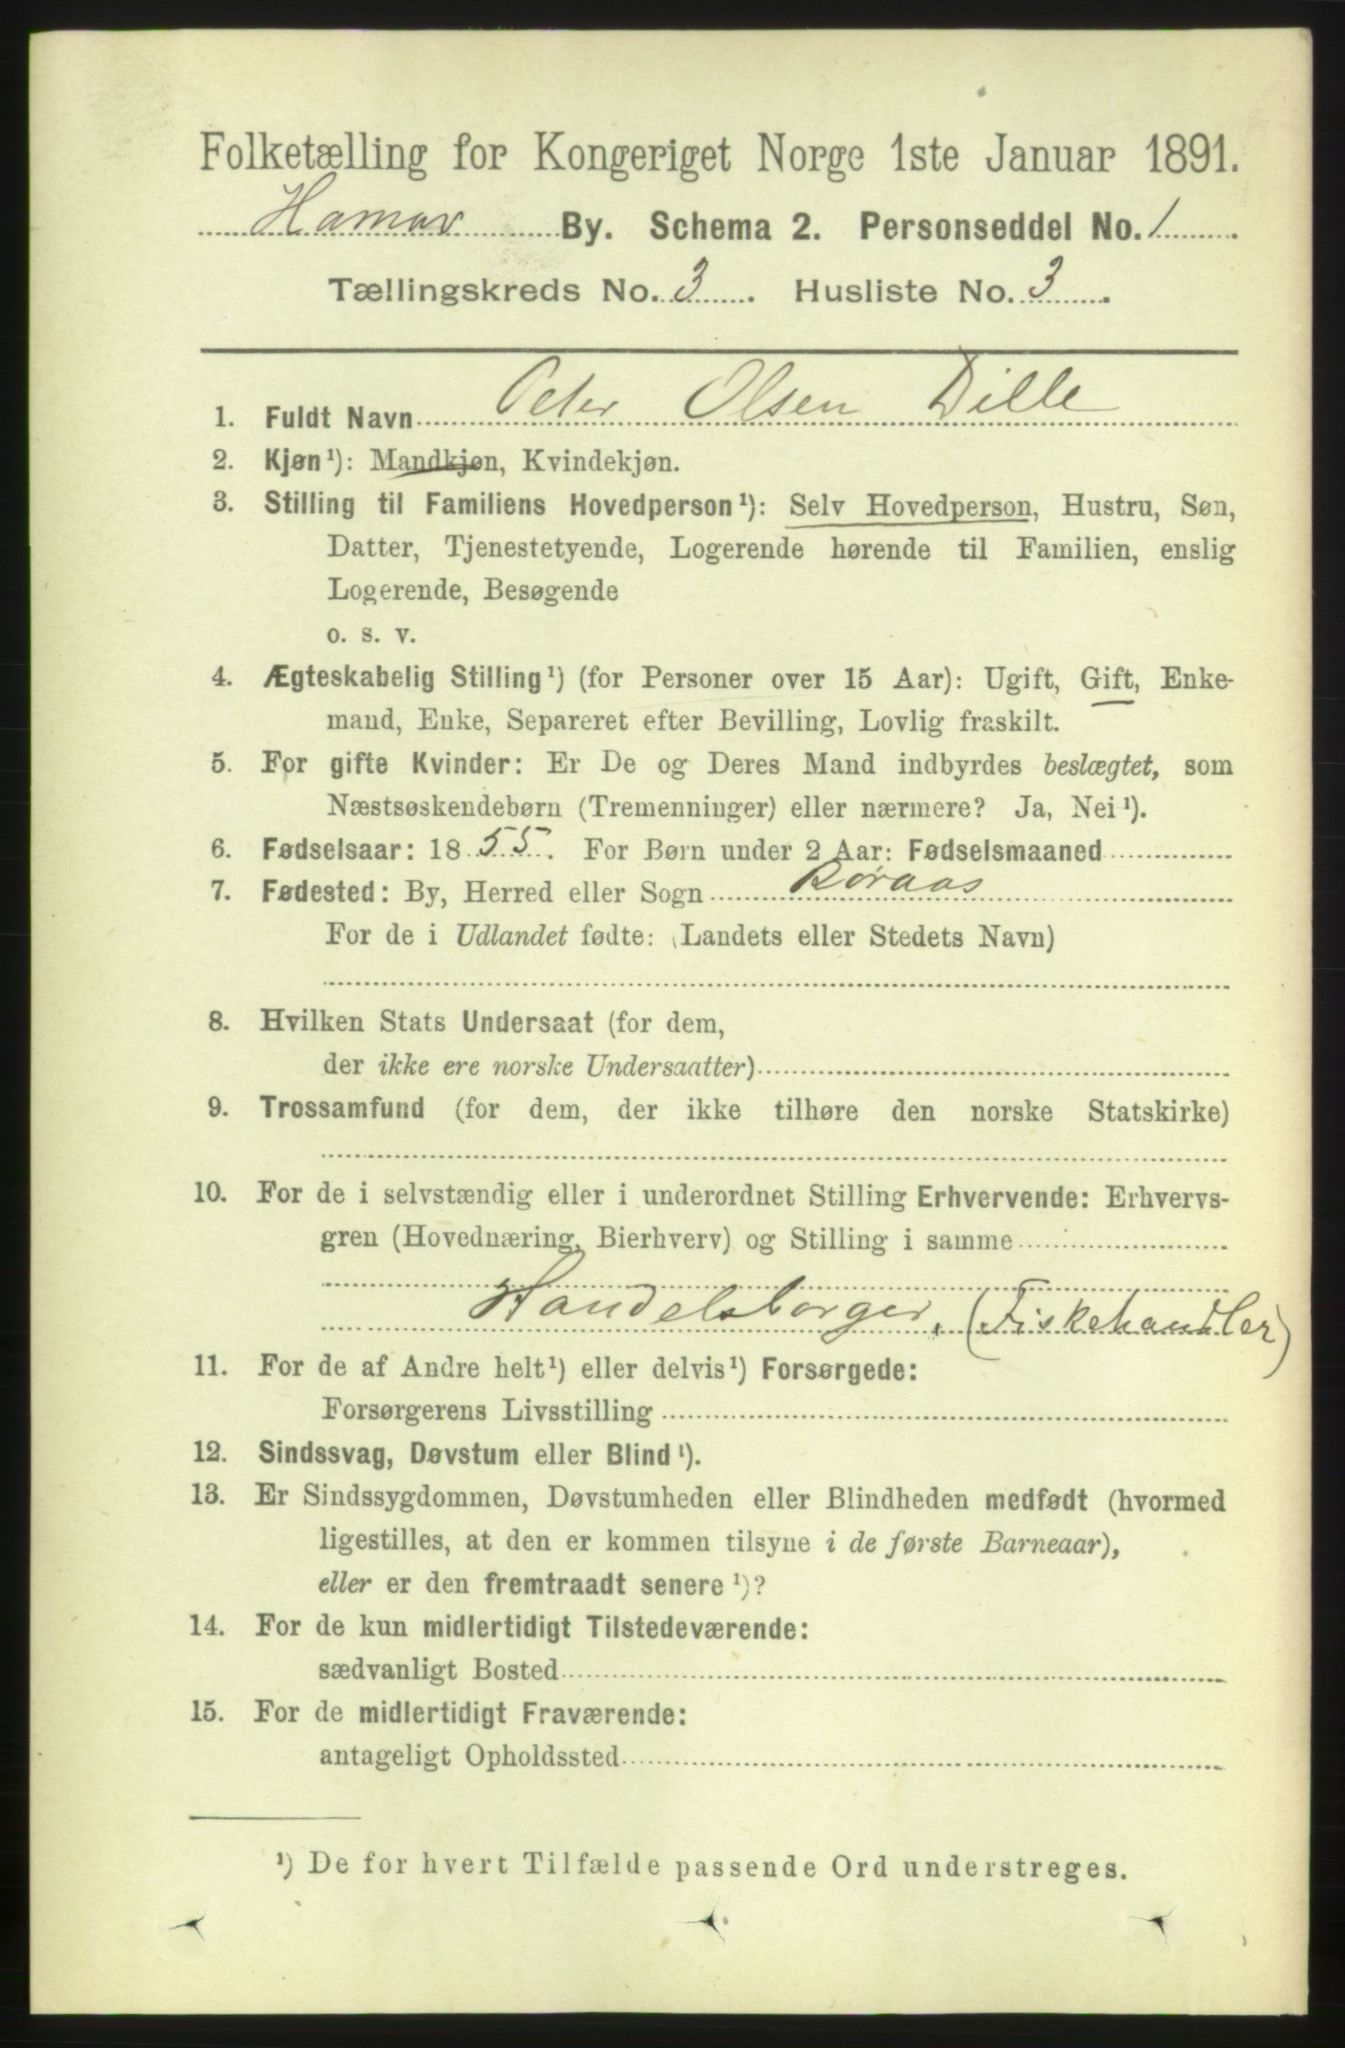 Folketælling for Kongeriget Norge 1ste Januar 1891.
Hamar By. Schema 2. Personseddel No. 1
Tællingskreds No. 3. Husliste No. 3.
1. Fuldt Navn Peter Olsen Dille
2. Kjøn ¹): Mandkjøn, Kvindekjøn.
3. Stilling til Familiens Hovedperson ¹): Selv Hovedperson, Hustru, Søn,
Datter, Tjenestetyende, Logerende hørende til Familien, enslig
Logerende, Besøgende
o. s. v.
4. Ægteskabelig Stilling ¹) (for Personer over 15 Aar): Ugift, Gift, Enke-
mand, Enke, Separeret efter Bevilling, Lovlig fraskilt.
5. For gifte Kvinder: Er De og Deres Mand indbyrdes beslægtet, som
Næstsøskendebørn (Tremenninger) eller nærmere? Ja, Nei ¹).
6. Fødselsaar: 1855. For Børn under 2 Aar: Fødselsmaaned
7. Fødested: By, Herred eller Sogn Røraas
For de i Udlandet fødte: (Landets eller Stedets Navn)
8. Hvilken Stats Undersaat (for dem,
der ikke ere norske Undersaatter)
9. Trossamfund (for dem, der ikke tilhøre den norske Statskirke)
10. For de i selvstændig eller i underordnet Stilling Erhvervende: Erhvervs-
gren (Hovednæring, Bierhverv) og Stilling i samme
Handelsborger, (Fiskehandler)
11. For de af Andre helt ¹) eller delvis ¹) Forsørgede:
Forsørgerens Livsstilling
12. Sindssvag, Døvstum eller Blind ¹).
13. Er Sindssygdommen, Døvstumheden eller Blindheden medfødt (hvormed
ligestilles, at den er kommen tilsyne i de første Barneaar),
eller er den fremtraadt senere ¹)?
14. For de kun midlertidigt Tilstedeværende:
sædvanligt Bosted
15. For de midlertidigt Fraværende:
antageligt Opholdssted
¹) De for hvert Tilfælde passende Ord understreges.